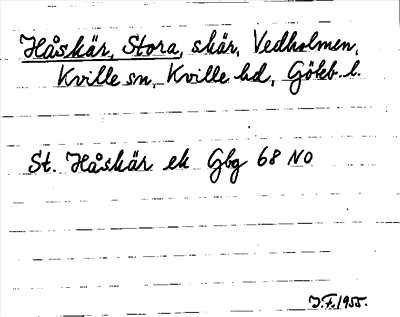 Håskär, Stora, skär, Vedholmen,
Kville sn, Kville hd, Göteb. l.
St. Håskär ek Gbg 68 NO
J.F. 1955.